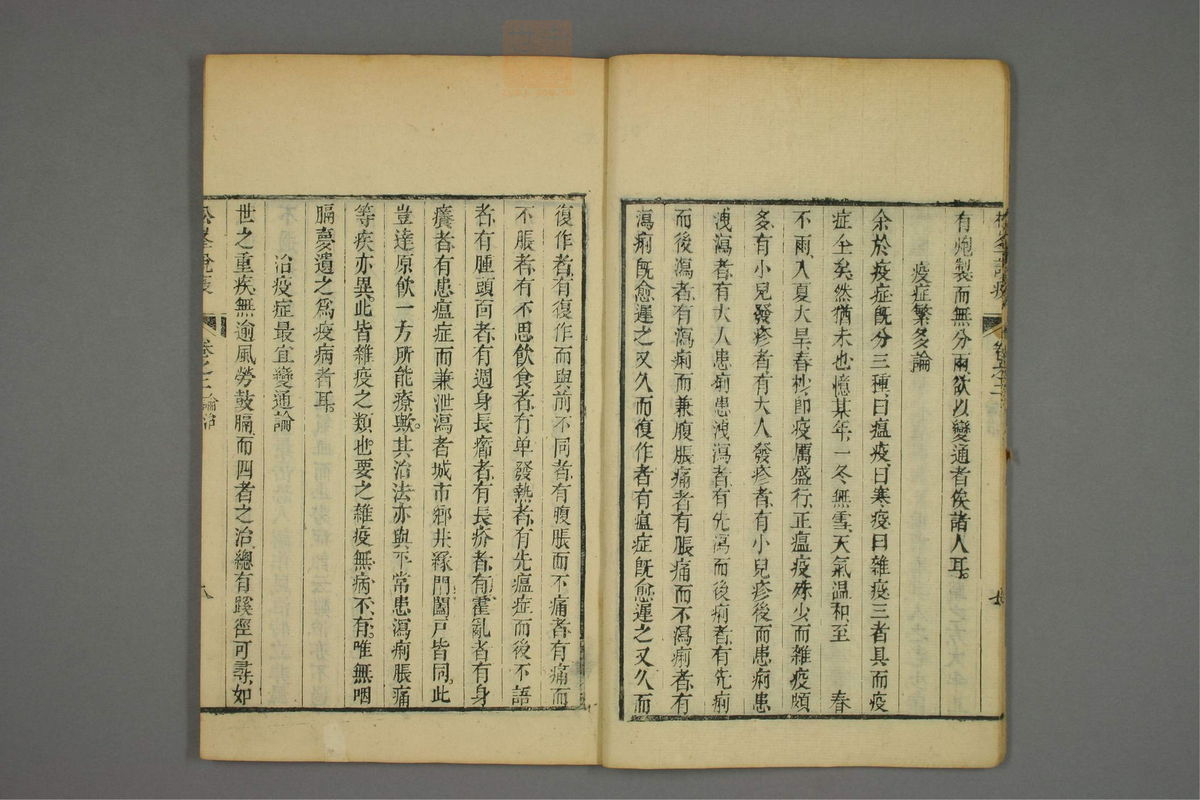 松峯說疫
卷之二
有炮製而無分兩欲以變通者俟諸人耳
疫症繁多論
余於疫症既分三種曰瘟疫曰寒疫曰雜疫三者具而疫
症全矣然猶未也憶某年一冬無雪天氣温和至 春
不雨入夏大旱春杪卽疫厲盛行正瘟疫殊少而雜疫頗
多有小兒發疹者有大人發疹者有小兒疹後而患痢患
洩瀉者有大人患痢患洩瀉者有先瀉而後痢者有先痢
而後瀉者有瀉痢而兼腹脹痛者有脹痛而不瀉痢者有
瀉痢既愈遲之又久而復作者有瘟症既愈遲之又久而
復作者有復作而與前不同者有腹脹而不痛者有痛而
不脹者有不思飲食者有单發熱者有先瘟症而後不語
者有腫頭面者有週身長癤者有長疥者有霍亂者有身
癢者有患瘟症而兼泄瀉者城市鄉井緣門闔戶皆同此
豈達原飲一方所能療歟其治法亦與平常患瀉痢脹痛
等疾亦異此皆雜疫之類也要之雜疫無病不有唯無咽
膈夢遺之爲疫病者耳
治疫症最宜變通論
世之重疾無逾風勞鼓膈而四者之治總有蹊徑可尋如
松峯說疫
卷之二 論治
八